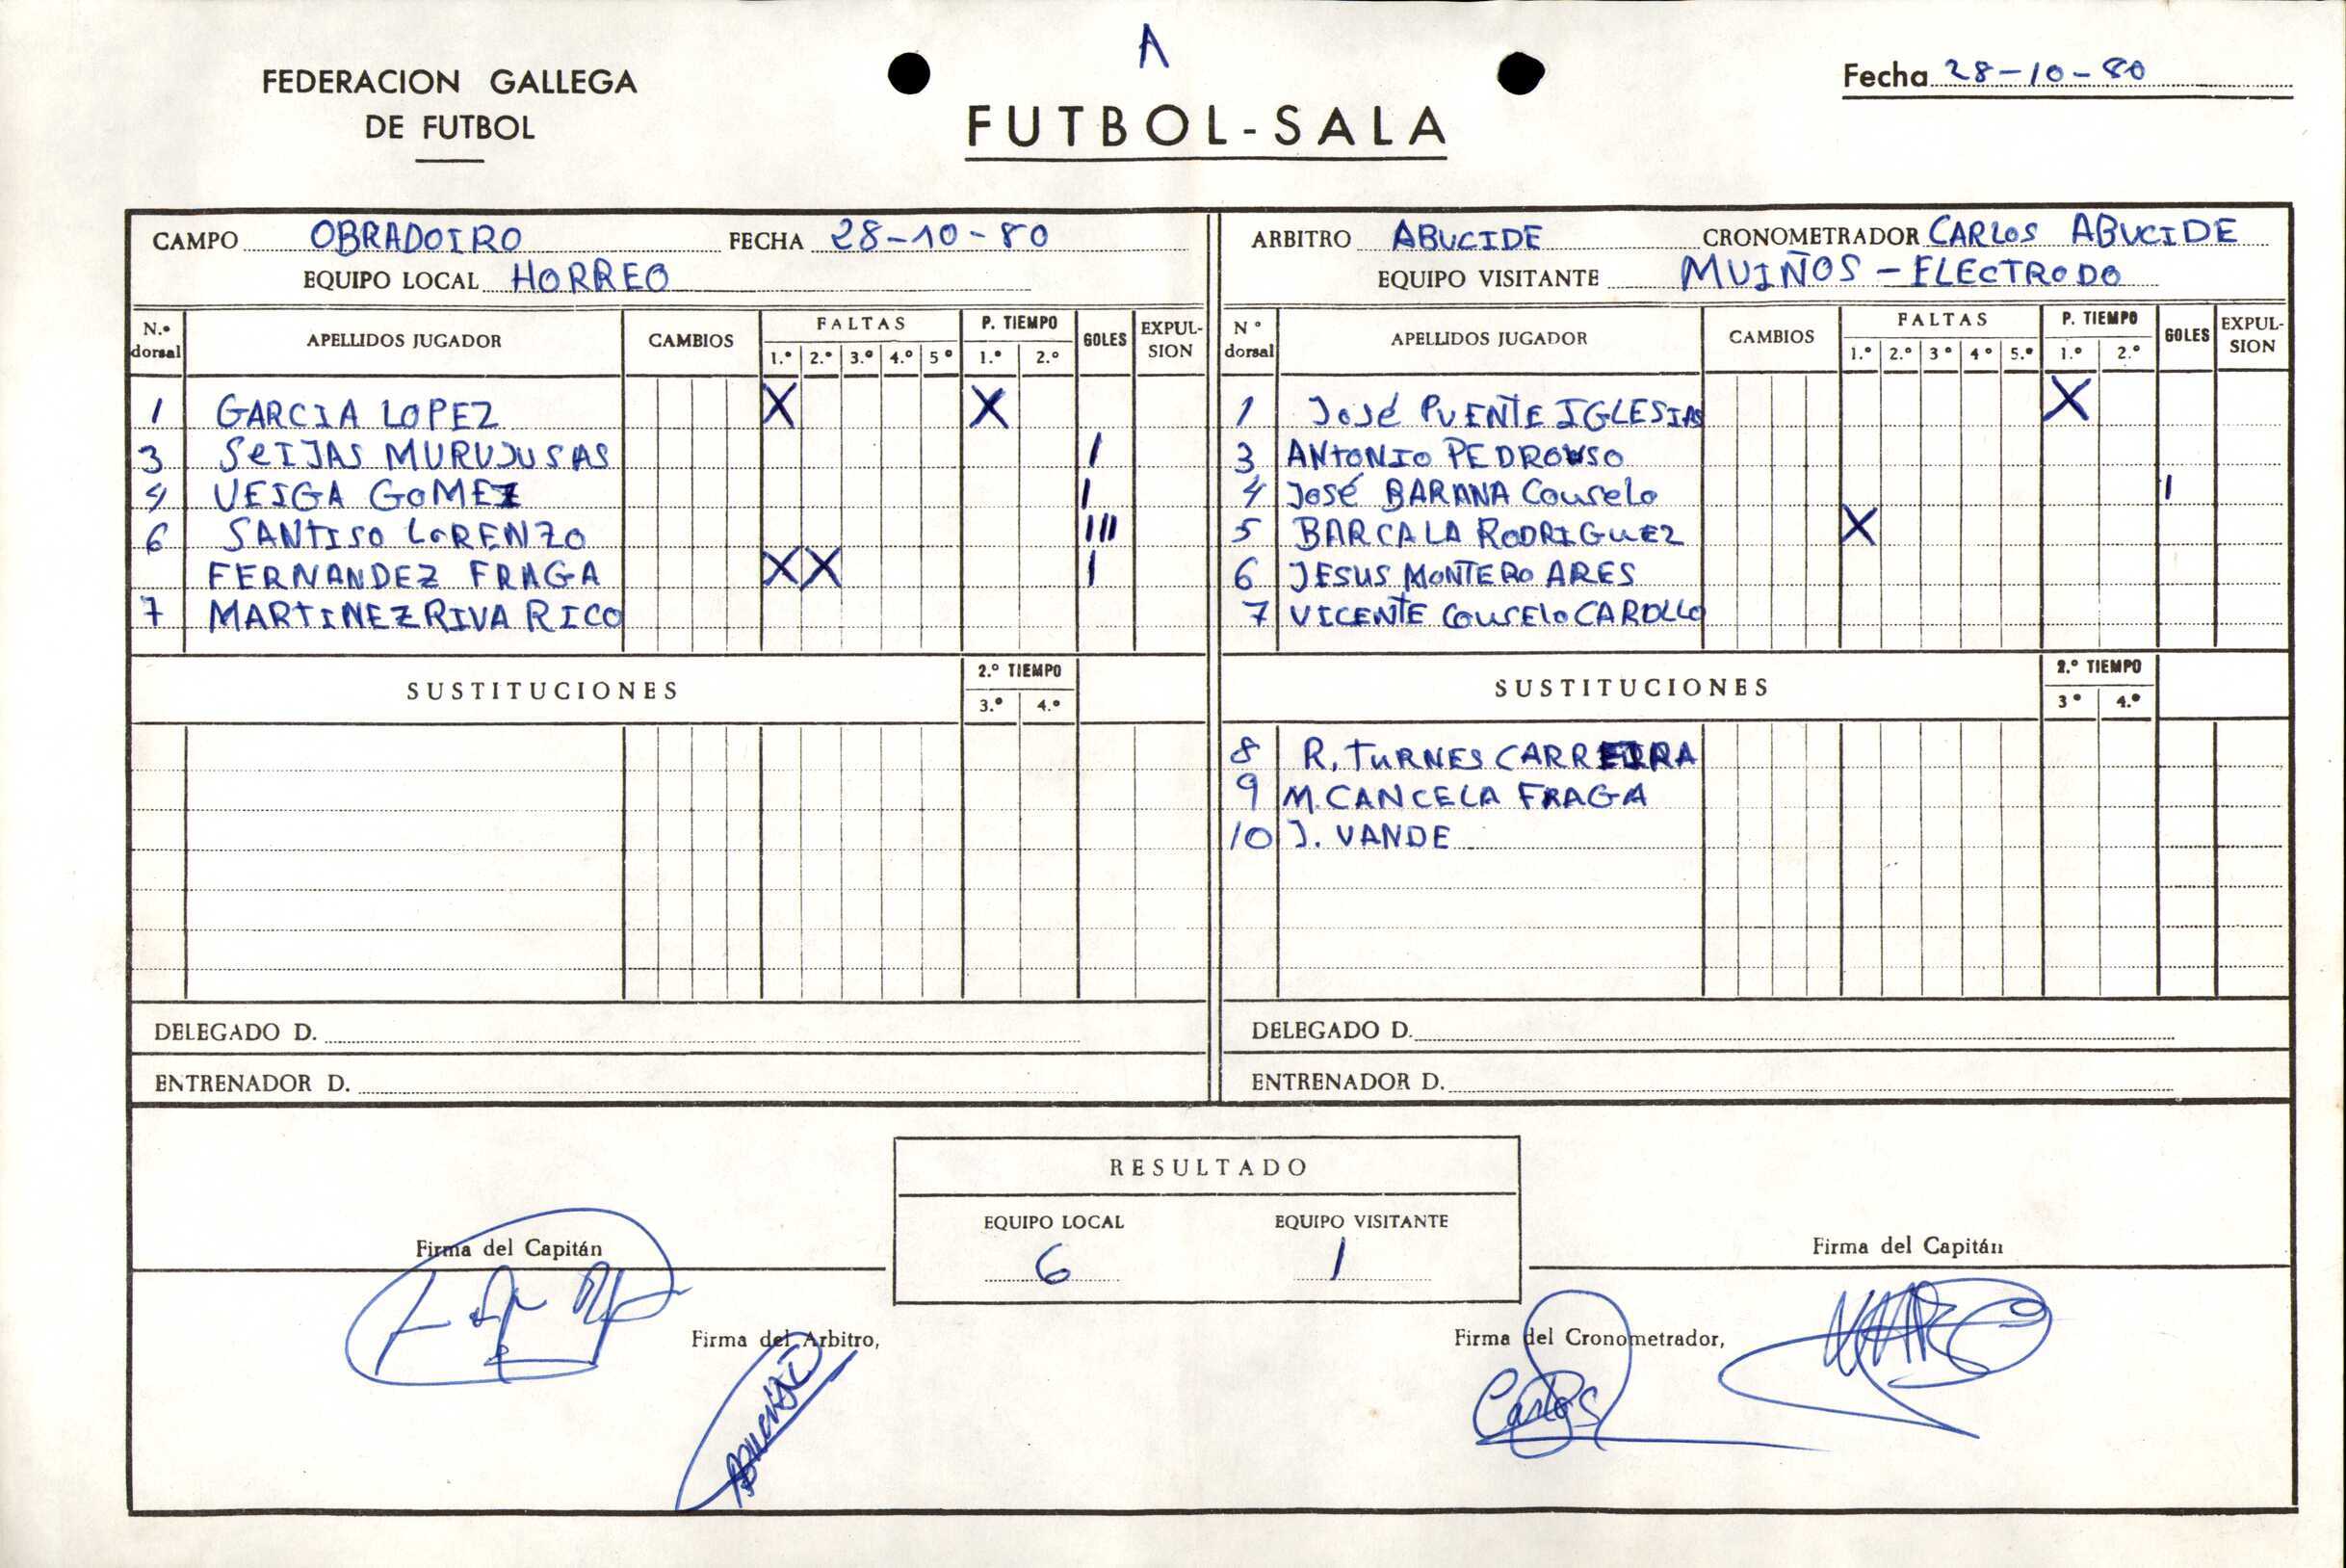 A
FEDERACION GALLEGA
DE FUTBOL
FUTBOL-SALA
Fecha 28-10-80
CAMPO OBRADOIRO FECHA 28-10-80
EQUIPO LOCAL HORREO
N.º dorsal APELLIDOS JUGADOR CAMBIOS FALTAS 1.º 2.º 3.º 4.º 5º P. TIEMPO 1.º 2.º GOLES EXPUL-SION
1 GARCIA LOPEZ X X
3 SEIJAS MURUJUSAS I
4 VEIGA GOMEZ I
6 SANTISO LORENZO III
FERNANDEZ FRAGA X X I
7 MARTINEZ RIVA RICO
SUSTITUCIONES 2.º TIEMPO 3.º 4.º
DELEGADO D.
ENTRENADOR D.
ARBITRO ABUCIDE CRONOMETRADOR CARLOS ABUCIDE
EQUIPO VISITANTE MUIÑOS - ELECTRODO
Nº dorsal APELLIDOS JUGADOR CAMBIOS FALTAS 1.º 2.º 3º 4º 5.º P. TIEMPO 1.º 2.º GOLES EXPUL-SION
1 José PUENTE IGLESIAS X
3 ANTONIO PEDROUSO
4 José BARANA Courelo I
5 BARCALA RODRIGUEZ X
6 JESUS MONTERO ARES
7 VICENTE COURELO CAROLLO
SUSTITUCIONES 2.º TIEMPO 3º 4.º
8 R. TURNES CARREIRA
9 M. CANCELA FRAGA
10 J. VANDE
DELEGADO D.
ENTRENADOR D.
RESULTADO
EQUIPO LOCAL EQUIPO VISITANTE
6 1
Firma del Capitán
Firma del Capitán
Firma del Arbitro,
Firma del Cronometrador,
Abucide
Carlos